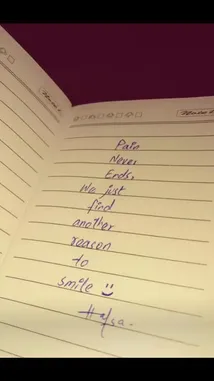 Pain
Never
Ends,
We just
find
another
reason
to
smile
Hafsa.